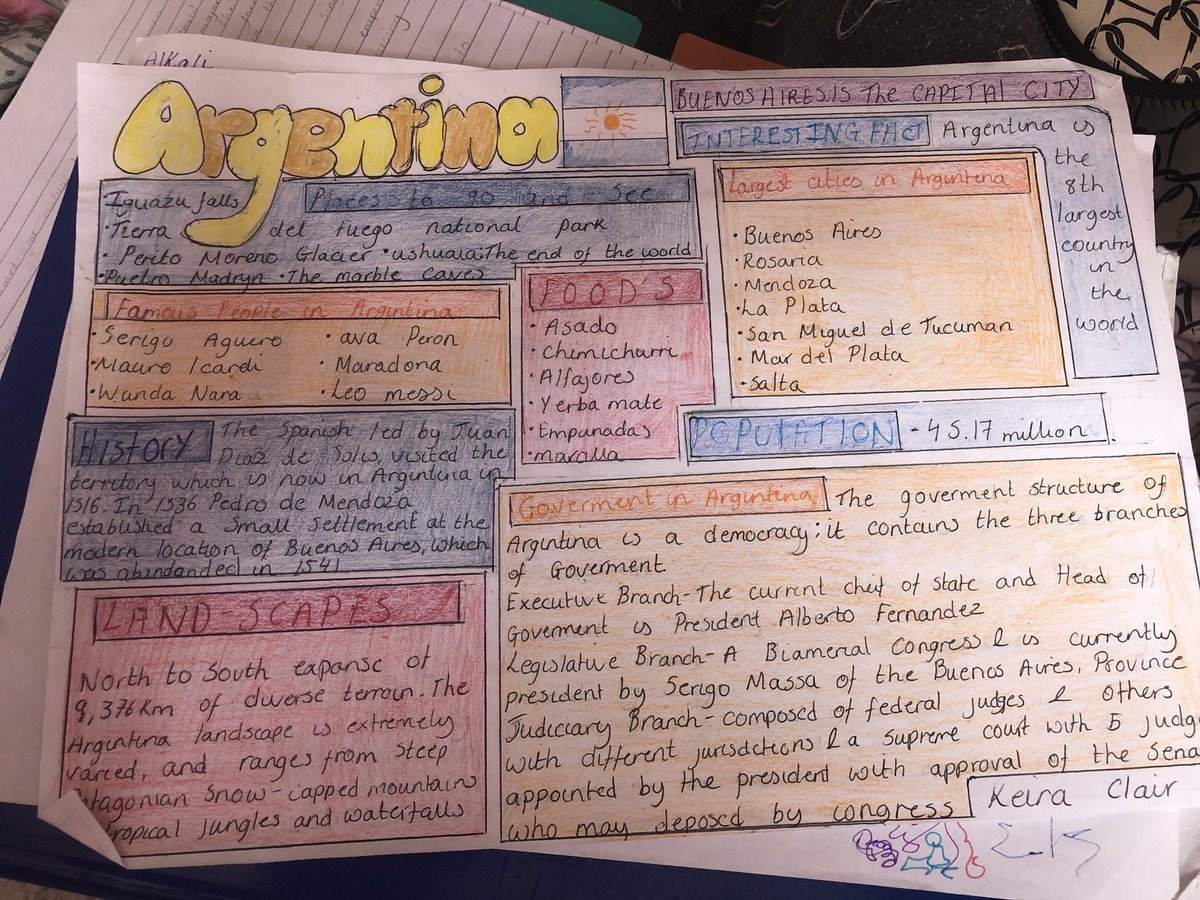 Alkali
Argentina
BUENOS AIRES.IS The CAPITAL CITY
INTERESTING FACT Argentina is
the
8th
largest
country
in
the
world
Places to go and see
Iguazu falls
•Tierra del fuego national park
• Perito Moreno Glacier •ushuaia:The end of the world
•Puetro Madryn •The marble caves
Largest cities in Argintina
•Buenos Aires
•Rosaria
•Mendoza
•La Plata
•San Miguel de Tucuman
•Mar del Plata
•Salta
Famous People in Argintina
•Serigo Aguero •ava Peron
•Mauro Icardi •Maradona
•Wanda Nara •Leo messi
FOOD'S
•Asado
•Chimicharri
•Alfajores
•Yerba mate
•Empanadas
POPULATION -45.17 million
History The Spanish led by Juan
Diaz de Solis, visited the
territory which is now in Argintina in
1516. In 1536 Pedro de Mendoza
established a small settlement at the
modern location of Buenos Aires, which
was abandanded in 1541
Goverment in Argintina The goverment structure of
Argintina is a democracy; it contains the three branches
of Goverment
Executive Branch-The current cheif of state and Head of
Goverment is President Alberto Fernandez
Legislative Branch-A Biameral Congress & is currently
president by Serigo Massa of the Buenos Aires, Province
Judiciary Branch-composed of federal judges & others
with different jurisdictions & a supreme court with 5 judge
appointed by the president with approval of the Sena
who may deposed by congress
LAND-SCAPES
North to South expanse of
of diverse terrain. The
Argintina landscape is extremely
varied, and ranges from steep
snow-capped mountains
tropical jungles and waterfalls
Keira Clair